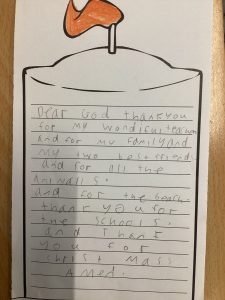 Dear God thankyou
for my wondifulteacwn
and for my familyand
my two bestfriends
and for all the
Animalls.
and for the beach.
thank you for
the schools.
and thank
you for
christ mass
Amed.